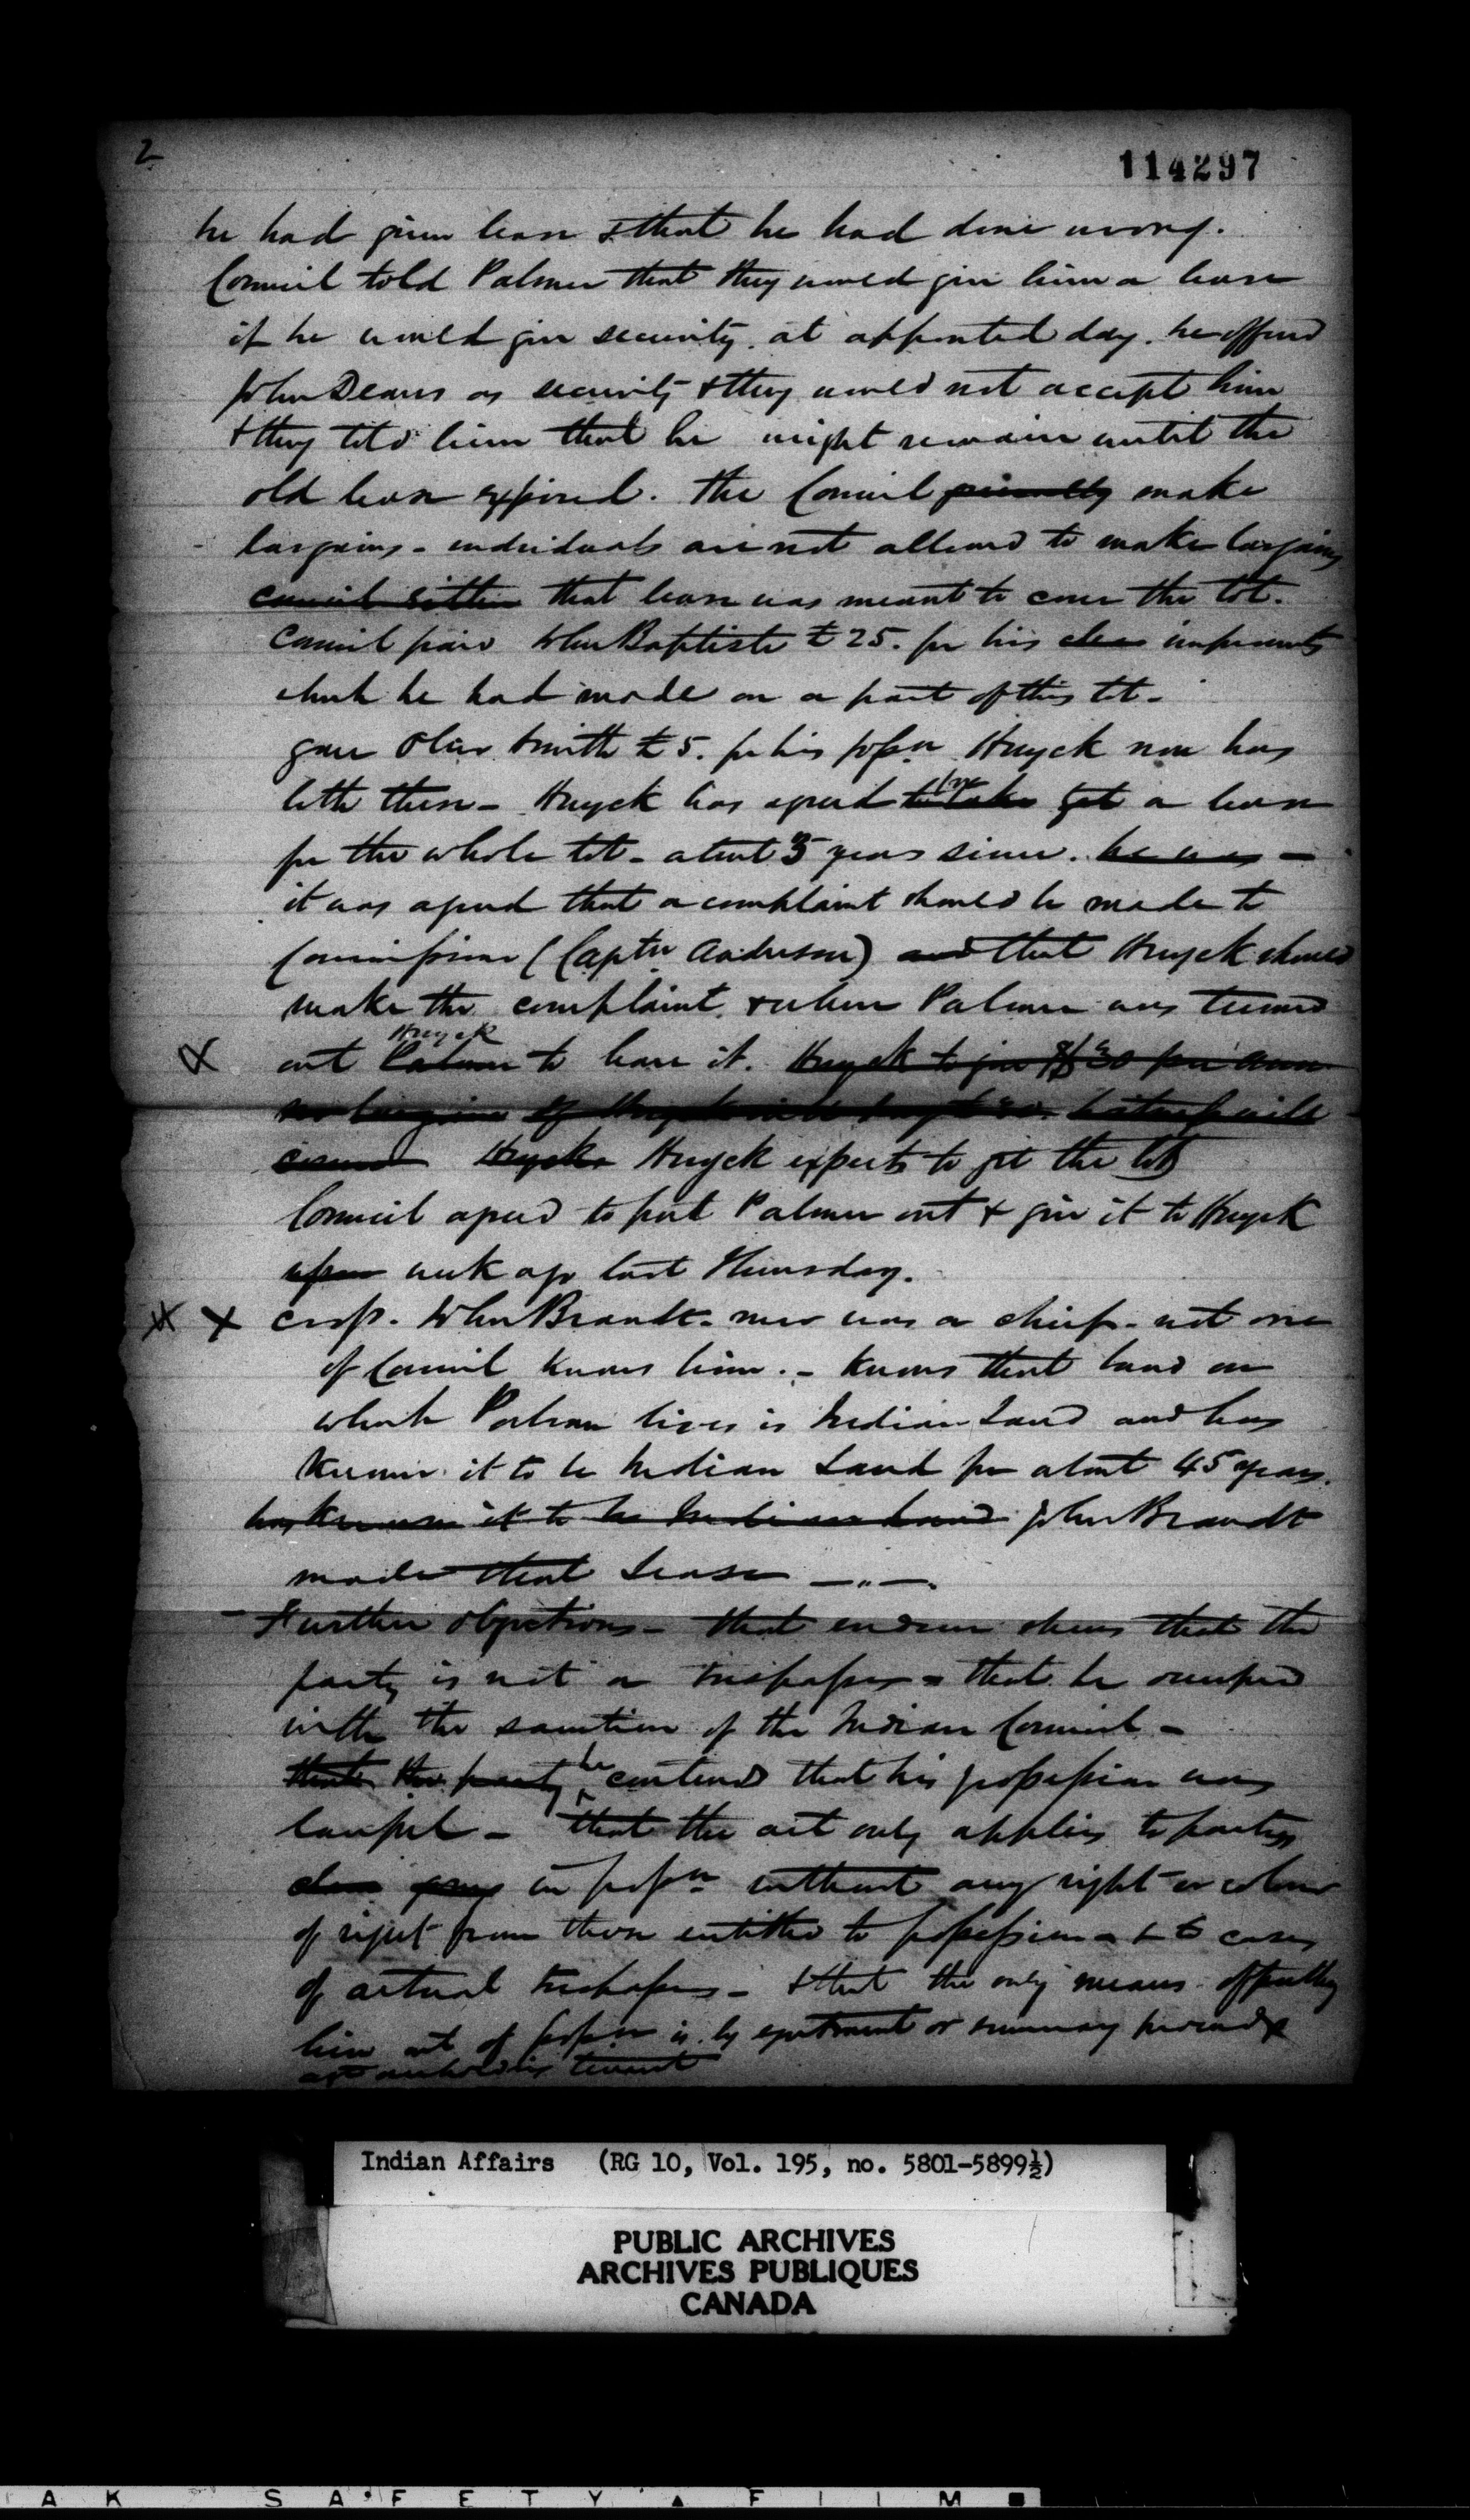 2
114297
he had given lease & that he had done wrong.
Council told Palmer that they would give him a lease
if he would give security. at appointed day. he offered
John Deans as security & they would not accept him
& they told him that he might remain until the
old lease expired. The Council make
bargains - individuals are not allowed to make bargains
council that lease was meant to cover the lot.
Council paid John Baptiste £25. for his improvements
which he had made on a part of this lot -
gave Smith £5. for his possn Huyck now has
both these - Huyck has agreed to take get a lease
for the whole lot - about 3 years since. he was -
it was agreed that a complaint should be made to
Commissioner (Captn Anderson) and that Huyck should
make the complaint. & when Palmer was turned
Huyck
out Palmer to have it. Huyck to give 30 per ann
Huyck Huyck expects to get the lot
Council agreed to put Palmer out & give it to Huyck
week ago last Thursday.
X cross. John Brandt - never was a chief - not one
of Council knows him. - knows that land on
which Palmer lives is Indian Land and has
known it to be Indian Land for about 45 years.
has known it to be Indian Land John Brandt
made that Lease
- Further objections - that evidence shews that the
party is not a trespasser - that he occupied
with the sanction of the Indian Council -
that the party he contends that his possession was
lawful - that the act only applies to parties
in possn without any right or colour
of right from those entitled to possession - & to cases
of actual trespass - & that the only means of putting
him out of possn is by ejectment or summary proceedgs
overholding tenant
Indian Affairs (RG 10, Vol. 195, no. 5801-5899½)
PUBLIC ARCHIVES
ARCHIVES PUBLIQUES
CANADA
A K SAFETY ▲ FILM ■